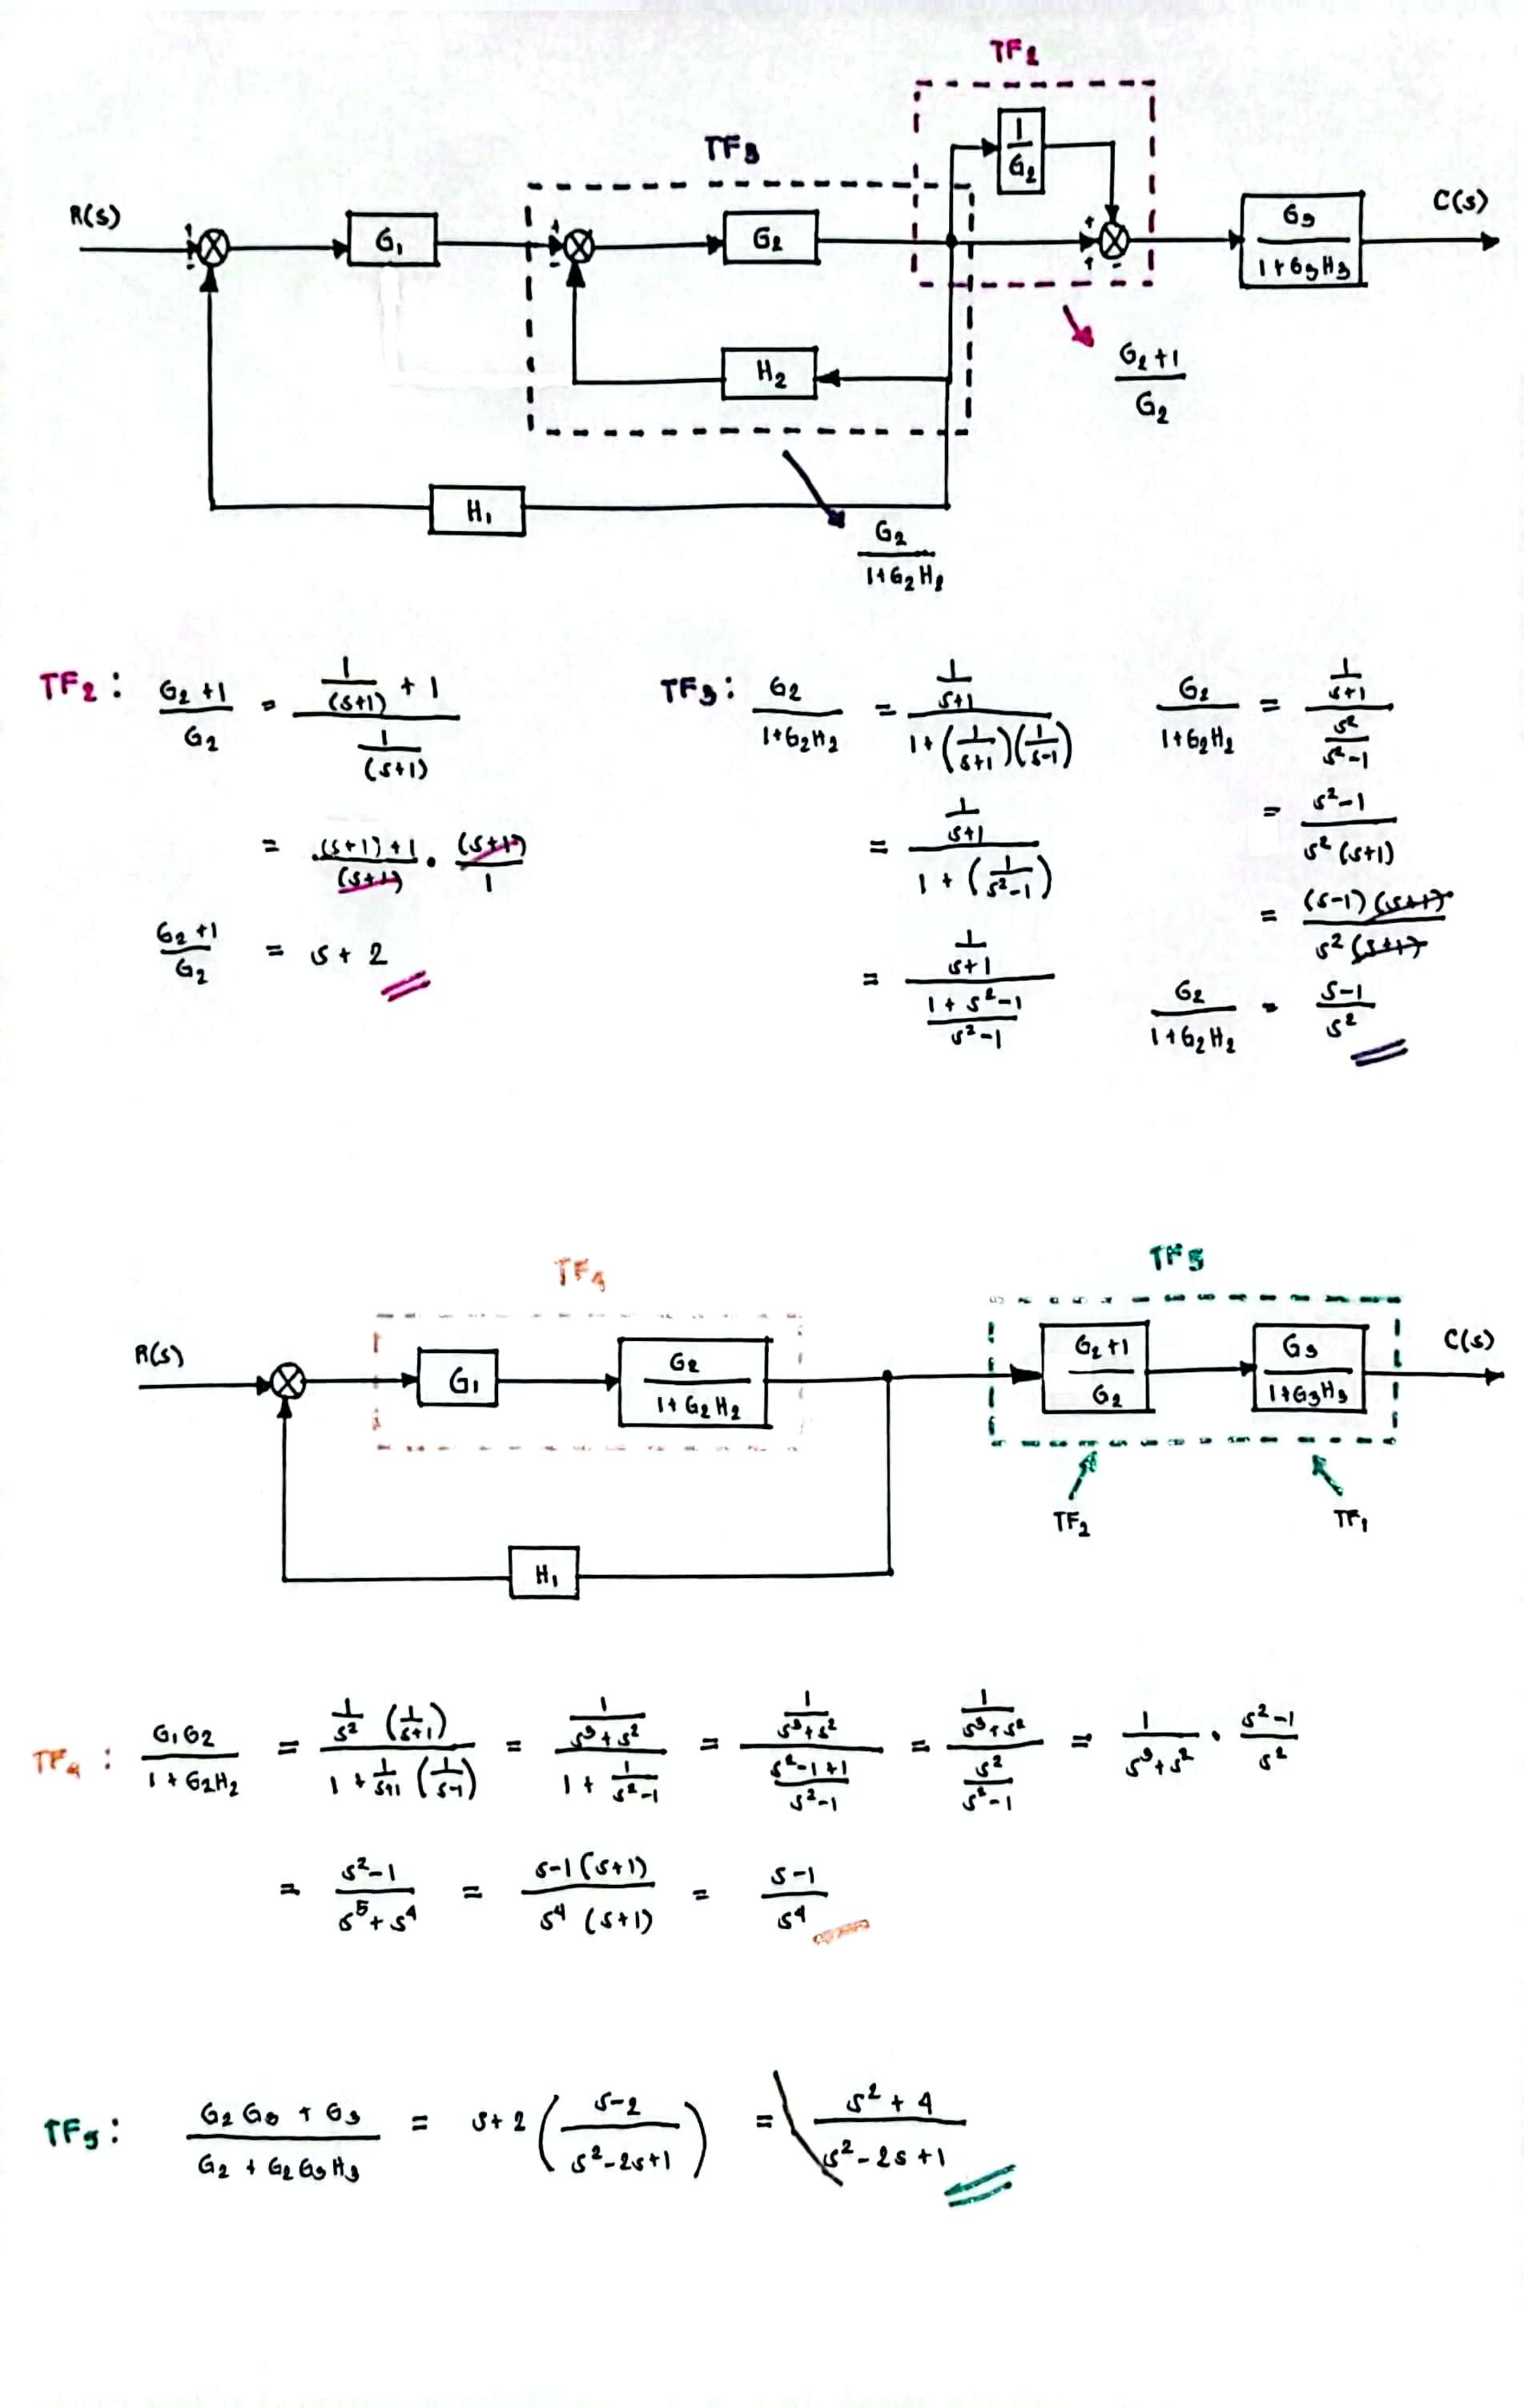 TF2
TF3
R(s) + - G1 + - G2 1/G2 + + - G3/(1+G3H3) C(s)
H2
(G2+1)/G2
H1
G2/(1+G2H2)
TF2: (G2+1)/G2 = (1/(s+1) + 1)/(1/(s+1))
= ((s+1)+1)/(s+1) · (s+1)/1
(G2+1)/G2 = s+2
TF3: G2/(1+G2H2) = (1/(s+1))/(1+(1/(s+1))(1/(s-1)))
= (1/(s+1))/(1+(1/(s²-1)))
= (1/(s+1))/((1+s²-1)/(s²-1))
G2/(1+G2H2) = (1/(s+1))/(s²/(s²-1))
= (s²-1)/(s²(s+1))
= ((s-1)(s+1))/(s²(s+1))
G2/(1+G2H2) = (s-1)/s²
TF4
TF5
R(s) G1 G2/(1+G2H2) (G2+1)/G2 G3/(1+G3H3) C(s)
TF2 TF1
H1
TF4: G1G2/(1+G2H2) = (1/s² (1/(s+1)))/(1+1/(s+1) (1/(s-1))) = (1/(s³+s²))/(1+1/(s²-1)) = (1/(s³+s²))/((s²-1+1)/(s²-1)) = (1/(s³+s²))/(s²/(s²-1)) = 1/(s³+s²) · (s²-1)/s²
= (s²-1)/(s⁵+s⁴) = (s-1(s+1))/(s⁴(s+1)) = (s-1)/s⁴
TF5: (G2G3+G3)/(G2+G2G3H3) = s+2((s-2)/(s²-2s+1)) = (s²+4)/(s²-2s+1)